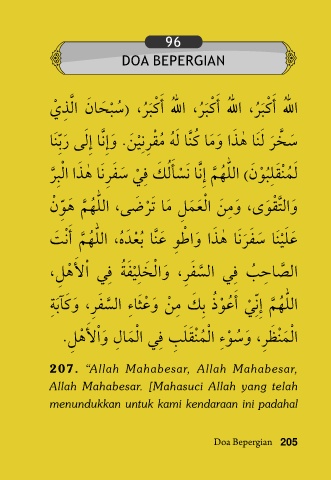 96
DOA BEPERGIAN
اللهُ أَكْبَرُ، اللهُ أَكْبَرُ، اللهُ أَكْبَرُ، ﴿سُبْحَانَ الَّذِيْ
سَخَّرَ لَنَا هٰذَا وَمَا كُنَّا لَهُ مُقْرِنِيْنَ. وَإِنَّا إِلَى رَبِّنَا
لَمُنْقَلِبُوْنَ﴾ اللّٰهُمَّ إِنَّا نَسْأَلُكَ فِيْ سَفَرِنَا هٰذَا الْبِرَّ
وَالتَّقْوَى، وَمِنَ الْعَمَلِ مَا تَرْضَى، اللّٰهُمَّ هَوِّنْ
عَلَيْنَا سَفَرَنَا هٰذَا وَاطْوِ عَنَّا بُعْدَهُ، اللّٰهُمَّ أَنْتَ
الصَّاحِبُ فِي السَّفَرِ، وَالْخَلِيْفَةُ فِي اْلأَهْلِ،
اللّٰهُمَّ إِنِّيْ أَعُوْذُ بِكَ مِنْ وَعْثَاءِ السَّفَرِ، وَكَآبَةِ
الْمَنْظَرِ، وَسُوْءِ الْمُنْقَلَبِ فِي الْمَالِ وَاْلأَهْلِ.
207. “Allah Mahabesar, Allah Mahabesar,
Allah Mahabesar. [Mahasuci Allah yang telah
menundukkan untuk kami kendaraan ini padahal
Doa Bepergian 205